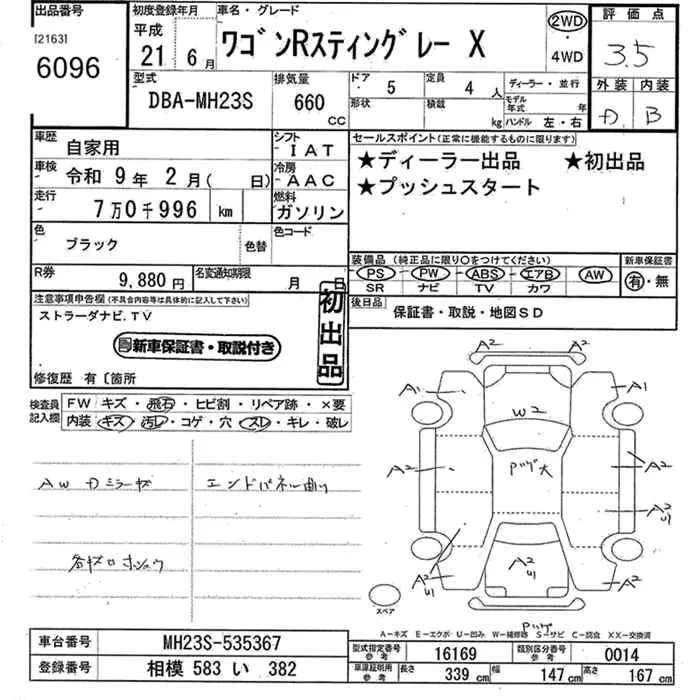 出品番号
[2163]
6096
初度登録年月
平成
21 6月
車名・グレード
ワゴンRスティングレー X
2WD
・
4WD
評価点
3.5
外装 内装
D B
型式
DBA-MH23S
排気量
660
cc
ドア 5
定員 4人
形状
積載 kg
ディーラー・並行
モデル年式 年
ハンドル 左・右
車歴 自家用
シフト IAT
車検 令和 9年 2月( 日)
冷房 AAC
走行 7万0千996 km
燃料 ガソリン
色 ブラック
色替
色コード
R券 9,880円
名変通知期限 月 日
セールスポイント(正常に機能するものに限ります)
★ディーラー出品 ★初出品
★プッシュスタート
装備品(純正品に限り○をつけてください)
PS・PW・ABS・エアB・AW
SR ナビ TV カワ
新車保証書
有・無
後日品 保証書・取説・地図SD
注意事項申告欄(不具合内容等は具体的に記入して下さい)
ストラーダナビ.TV
新車保証書・取説付き
初出品
修復歴 有〔箇所
検査員記入欄
FW キズ・飛石・ヒビ割・リペア跡・×要
内装 キズ・汚レ・コゲ・穴・スレ・キレ・破レ
AW Dミラーキズ
エンドパネル曲り
各キズロホシュウ
A2 A2
A1 A1
W2
A2 A2
Pツゲ大
A2
U1
A2
U1
A2 A2
スペア
Pツゲ
A-キズ E-エクボ U-凹み W-補修跡 S-サビ C-腐食 XX-交換済
車台番号 MH23S-535367
登録番号 相模 583 い 382
型式指定番号 参考 16169
類別区分番号 参考 0014
車庫証明用 参考 長さ 339cm 幅 147cm 高さ 167cm